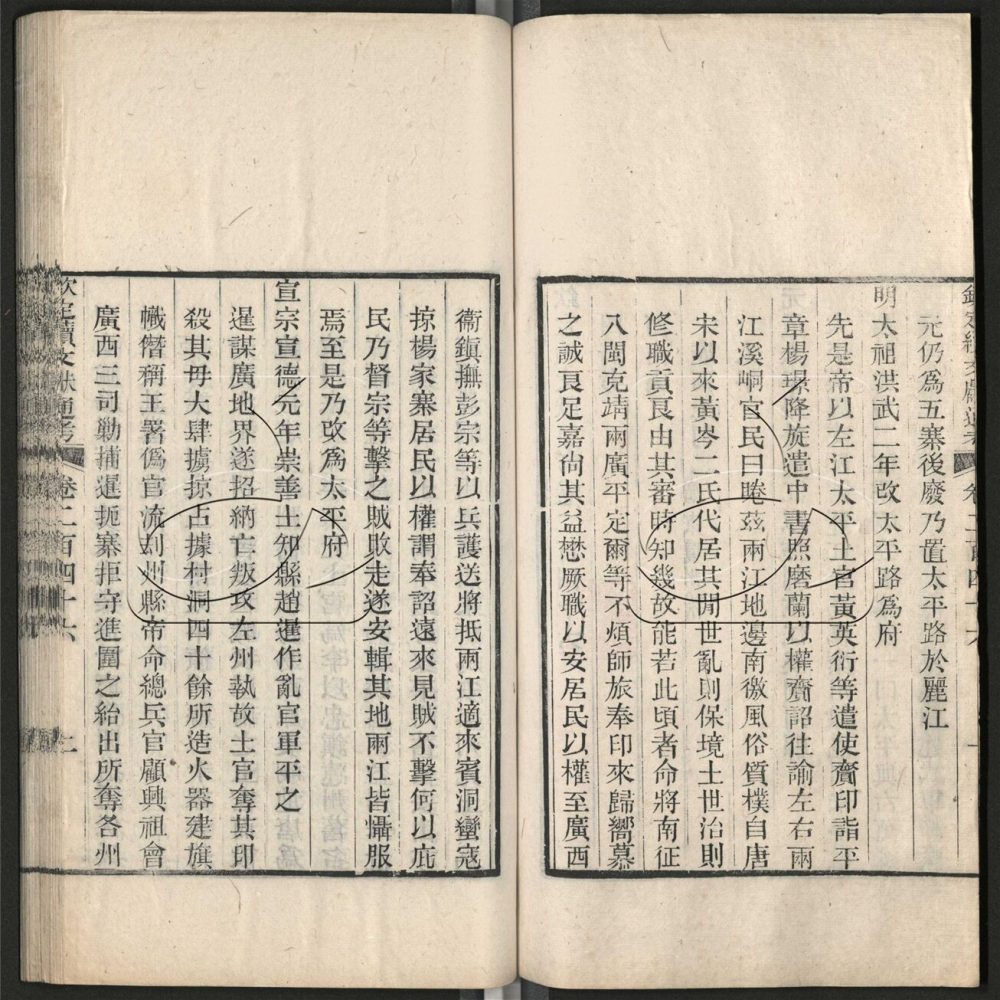 欽定續文獻通考 卷二百四十六
元仍爲五寨後廢乃置太平路於麗江
明太祖洪武二年改太平路爲府
先是帝以左江太平土官黃英衍等遣使齎印詣平
章楊璟降旋遣中書照磨蘭以權齎詔往諭左右兩
江溪峒官民曰睠茲兩江地邊南徼風俗質樸自唐
宋以來黃岑二氏代居其閒世亂則保境土世治則
修職貢良由其審時知幾故能若此頃者命將南征
八閩克靖兩廣平定爾等不煩師旅奉印來歸嚮慕
之誠良足嘉尚其益懋厥職以安居民以權至廣西
衞鎮撫彭宗等以兵護送將抵兩江適來賓洞蠻寇
掠楊家寨居民以權謂奉詔遠來見賊不擊何以庇
民乃督宗等擊之賊敗走遂安輯其地兩江皆懾服
焉至是乃改爲太平府
宣宗宣德元年崇善土知縣趙暹作亂官軍平之
暹謀廣地界遂招納亡叛攻左州執故土官奪其印
殺其母大肆擄掠占據村洞四十餘所造火器建旗
幟僭稱王署僞官流刦州縣帝命總兵官顧興祖會
廣西三司勦捕暹扼寨拒守進圍之紿出所奪各州
欽定續文獻通考 卷二百四十六 二